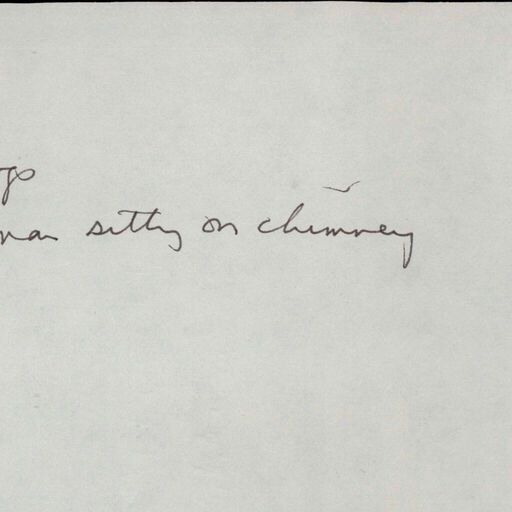 man sitting on chimney